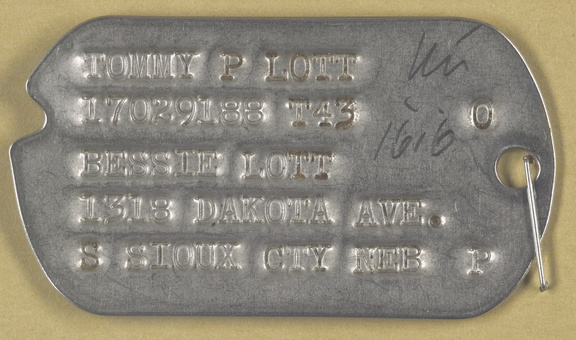 TOMMY P LOTT
17029188 T43 O
BESSIE LOTT
1318 DAKOTA AVE.
S SIOUX CTY NEB P